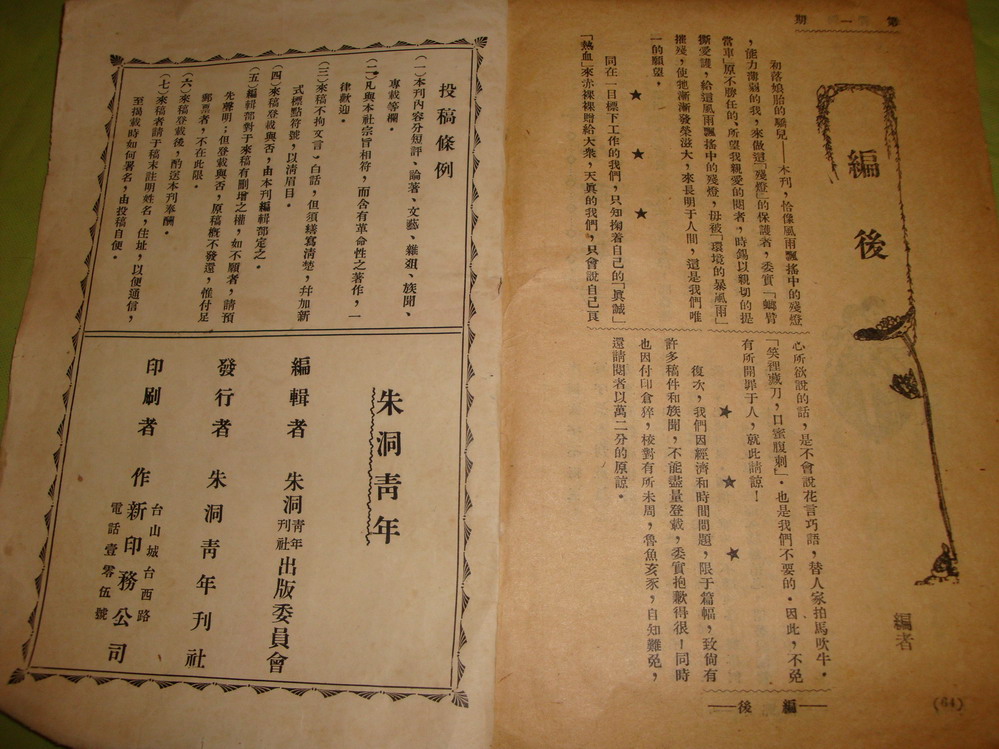 第一期
編後
編者
初落娘胎的驕兒——本刊,恰像風雨飄搖中的殘燈
,能力薄弱的我,來做這「殘燈」的保護者,委實「螂臂
當車」原不勝任的、所望我親愛的閱者,時錫以親切的提
撕愛護,給這風雨飄搖中的殘燈,毋被「環境的暴風雨」
摧殘,使牠漸漸發榮滋大,來長明于人間,這是我們唯
一的願望,
★ ★ ★
同在一目標下工作的我們,只知掬着自己的「眞誠」
「熱血」來赤裸裸贈給大衆,天眞的我們,只會說自己良
心所欲說的話,是不會說花言巧語,替人家拍馬吹牛.
「笑裡藏刀,口蜜腹刺」.也是我們不要的.因此,不免
有所開罪于人,就此請諒!
★ ★ ★
復次,我們因經濟和時間問題,限于篇幅,致倘有
許多稿件和族聞,不能盡量登載,委實抱歉得很!同時
也因付印倉猝,校對有所未周,魯魚亥豕,自知難免,
還請閱者以萬二分的原諒.
——編 後——
(64)
投稿條例
(一)本刊內容分短評、論著、文藝、雜俎、族聞、
專載等欄.
(二)凡與本社宗旨相符,而含有革命性之著作,一
律歡迎.
(三)來稿不拘文言、白話,但須繕寫清楚,幷加新
式標點符號,以清眉目.
(四)來稿登載與否,由本刊編輯部定之.
(五)編輯部對于來稿有刪增之權,如不願者,請預
先聲明;但登載與否,原稿槪不發還,惟付足
郵票者,不在此限.
(六)來稿登載後,酌送本刊奉酬.
(七)來稿者請于稿末註明姓名,住址,以便通信,
至揭載時如何署名,由投稿自便.
朱洞靑年
編輯者 朱洞靑年刊社出版委員會
發行者 朱洞靑年刊社
印刷者 作新印務公司
台山城台西路
電話壹零伍號